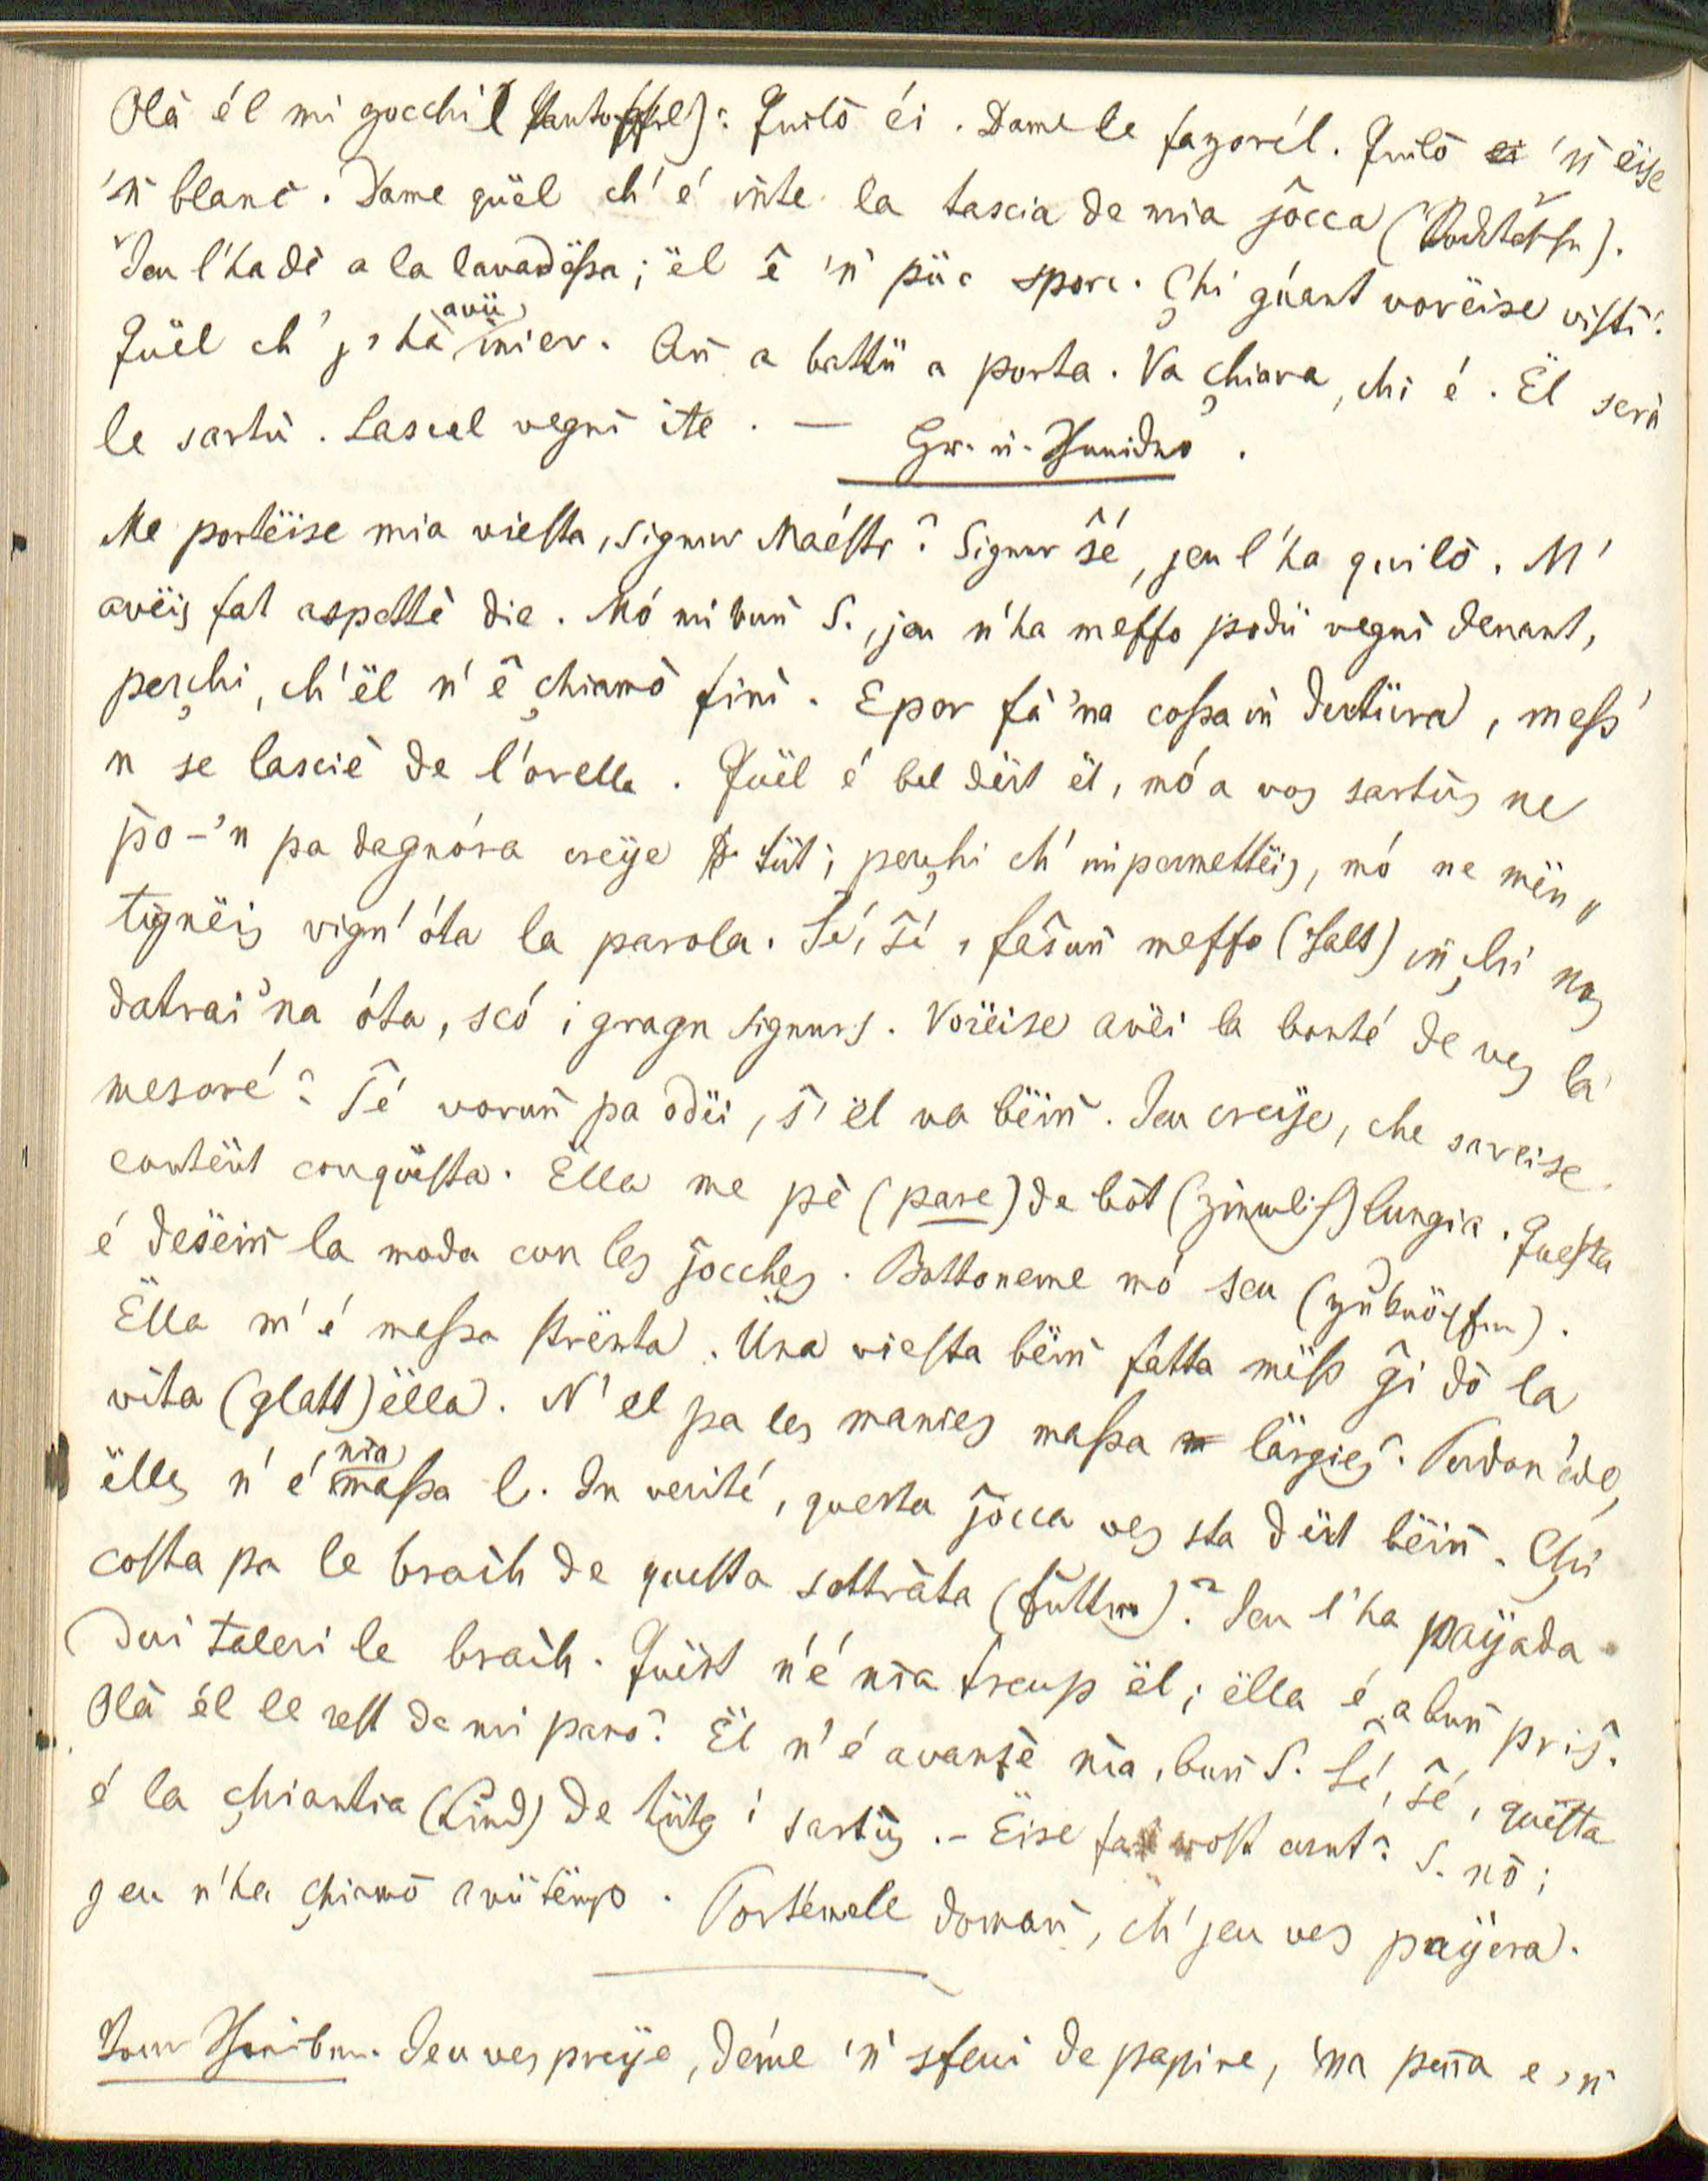 Olà él mi gocchi (Pantoffel)? Quilò éi. Dame le fazorél. Quilò 'ǹ ëise
'ǹ blanc. Dame quël ch' é iǹte la tascia de mia jòcca (Rocktasche).
Jeu l'ha dè a la lavadëssa; ël ê 'ǹ püc sporc. Chi guant vorëise vistì?
Quël ch' j' hà avü inier. Aǹ a battü a porta. Va chiara, chi é. Ël serà
le sartù. Lascel vegnì ite. — Gw. u. Schneider.
Me portëise mia viesta, Signur Maéstr? Signur sé, jeu l'ha quilò. M'
avëis fat aspettè die. Mó mi buǹ S., jeu n'ha meffo podü vegnì denant,
perchi, ch'ël n' ê chiamò finì. E por fà 'na cossa iǹ dertüra, mess'
n se lasciè de l'orella. Quël é bel dërt ël, mó a vos sartùs ne
po-'n pa dagnóra creÿe tüt; perchi ch' impermettëis, mó ne mën„
tignëis vign' óta la parola. Sé, sé, fasuǹ meffo (halt) iǹchi nos
datrai 'na óta, scó i gragn Signurs. Vorëise avëi la bonté de ves la
mesoré? Sé voruǹ pa odëi, s' ël va bëiǹ. Jeu creÿe, che sareise
contënt conquësta. Ëlla me pè (pare) de bòt (ziemlich) lungia. Questa
é desëiǹ la moda con les jocches. Bottoneme mó seu (zuknöpfen).
Ëlla m' é massa strënta. Üna viesta bëiǹ fatta mëss gì dò la
vita (glatt) ëlla. N' el pa les manies massa lärgies? Perdonéde,
ëlles n' é nia massa l. In verité, questa jocca ves sta dërt bëiǹ. Chi
costa pa le braìh de questa sottràta (Futter)? Jeu l'ha paÿada
dui taleri le braìh. Quëst n'é nia treup ël; ëlla é a buǹ pris.
Olà él le rest de mi pano? Ël n' é avanzè nia, buǹ S. Sé, sé, quësta
é la chiantia (Lied) de tütg i sartùs. – Ëise fat vost cunt? S. nò;
jeu n'ha chiamò avü tëmp. Portémele domaǹ, ch' jeu ves paÿera.
Zum Schreiben. Jeu ves preÿe, déme 'ǹ sfeui de papire, 'na penna e 'ǹ